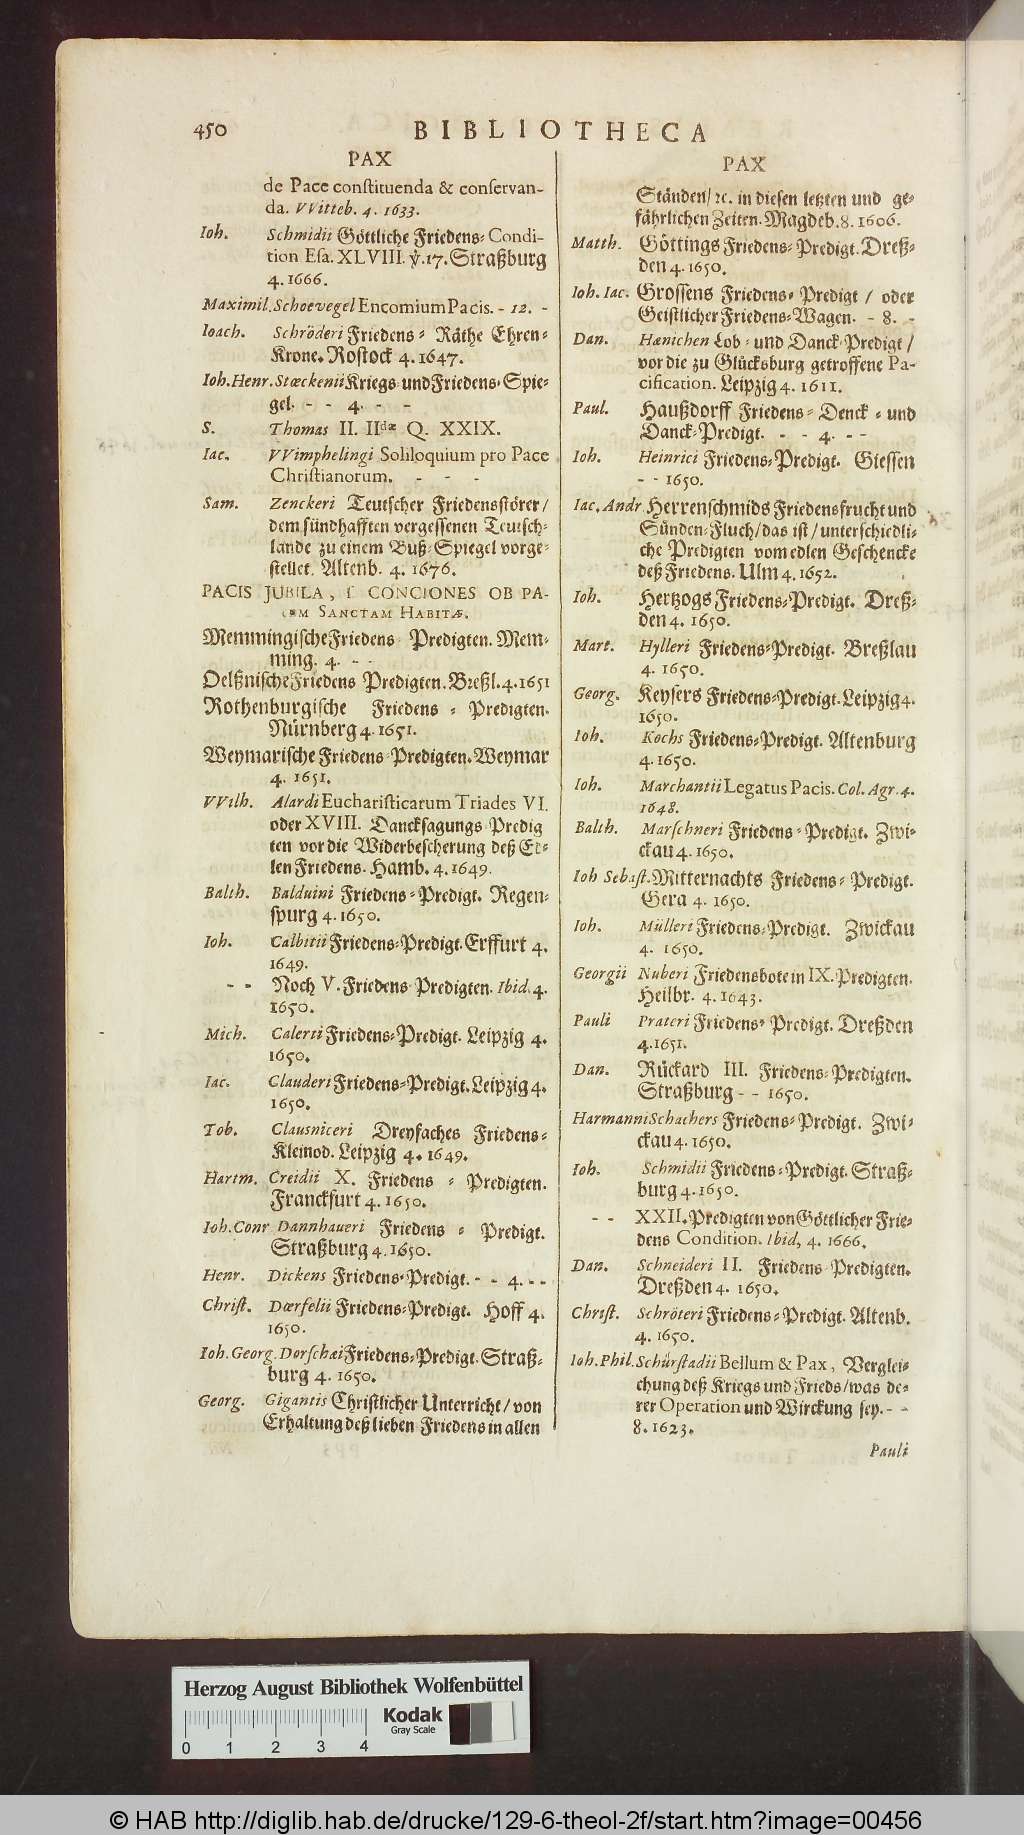 450 BIBLIOTHECA
PAX
de Pace conſtituenda & conſervan-
da. VVitteb. 4. 1633.
Ioh. Schmidii Göttliche Friedens-Condi-
tion Eſa. XLVIII. ℣. 17. Straßburg
4. 1666.
Maximil. Schoevegel Encomium Pacis. - 12. -
Ioach. Schröderi Friedens- Räthe Ehren-
Krone. Rostock 4. 1647.
Ioh. Henr. Stœckenii Kriegs und Friedens-Spie-
gel. - - 4. - -
S. Thomas II. IIdæ Q. XXIX.
Iac. VVimphelingi Soliloquium pro Pace
Chriſtianorum. - - -
Sam. Zenckeri Teutſcher Friedensstörer/
dem ſündhafften vergeſſenen Teutſch-
lande zu einem Buß-Spiegel vorge-
stellet. Altenb. 4. 1676.
PACIS JUBILA, ſ CONCIONES OB PA-
CEM SANCTAM HABITÆ.
Memmingiſche Friedens Predigten. Mem-
ming. 4. - -
Oelßniſche Friedens Predigten. Breßl. 4. 1651
Rothenburgiſche Friedens - Predigten.
Nürnberg 4. 1651.
Weymariſche Friedens Predigten. Weymar
4. 1651.
VVilh. Alardi Euchariſticarum Triades VI.
oder XVIII. Danckſagungs Predig
ten vor die Widerbeſcherung deß Ed-
len Friedens. Hamb. 4. 1649.
Balth. Balduini Friedens-Predigt. Regen-
ſpurg 4. 1650.
Ioh. Calbitii Friedens-Predigt. Erffurt 4.
1649.
- - Noch V. Friedens Predigten. Ibid. 4.
1650.
Mich. Calerti Friedens-Predigt. Leipzig 4.
1650.
Iac. Clauderi Friedens-Predigt. Leipzig 4.
1650.
Tob. Clausniceri Dreyfaches Friedens-
Kleinod. Leipzig 4. 1649.
Hartm. Creidii X. Friedens - Predigten.
Franckfurt 4. 1650.
Ioh. Conr Dannhaueri Friedens - Predigt.
Straßburg 4. 1650.
Henr. Dickens Friedens-Predigt. - - 4. - -
Chriſt. Dœrfelii Friedens-Predigt. Hoff 4.
1650.
Ioh. Georg. Dorſchæi Friedens-Predigt. Straß-
burg 4. 1650.
Georg. Gigantis Chriſtlicher Unterricht/ von
Erhaltung deß lieben Friedens in allen
PAX
Ständen/ ꝛc. in dieſen letzten und ge-
fährlichen Zeiten. Magdeb. 8. 1606.
Matth. Göttings Friedens-Predigt. Dreß-
den 4. 1650.
Ioh. Iac. Groſſens Friedens- Predigt / oder
Geiſtlicher Friedens-Wagen. - 8. -
Dan. Hænichen Lob- und Danck-Predigt /
vor die zu Glücksburg getroffene Pa-
cification. Leipzig 4. 1611.
Paul. Haußdorff Friedens- Denck - und
Danck-Predigt. - - 4. - -
Ioh. Heinrici Friedens-Predigt. Gieſſen
- - 1650.
Iac. Andr Herrenſchmids Friedensfrucht und
Sünden-Fluch/ das iſt/ unterſchiedli-
che Predigten vom edlen Geſchencke
deß Friedens. Ulm 4. 1652.
Ioh. Hertzogs Friedens-Predigt. Dreß-
den 4. 1650.
Mart. Hylleri Friedens-Predigt. Breßlau
4. 1650.
Georg. Keyſers Friedens-Predigt. Leipzig 4.
1650.
Ioh. Kochs Friedens-Predigt. Altenburg
4. 1650.
Ioh. Marchantii Legatus Pacis. Col. Agr. 4.
1648.
Balth. Marſchneri Friedens-Predigt. Zwi-
ckau 4. 1650.
Ioh Sebaſt. Mitternachts Friedens-Predigt.
Gera 4. 1650.
Ioh. Mülleri Friedens-Predigt. Zwickau
4. 1650.
Georgii Nuberi Friedensbote in IX. Predigten.
Heilbr. 4. 1643.
Pauli Prateri Friedens- Predigt. Dreßden
4. 1651.
Dan. Rückard III. Friedens-Predigten.
Straßburg - - 1650.
Harmanni Schachers Friedens-Predigt. Zwi-
ckau 4. 1650.
Ioh. Schmidii Friedens-Predigt. Straß-
burg 4. 1650.
- - XXII. Predigten von Göttlicher Frie-
dens Condition. Ibid, 4. 1666.
Dan. Schneideri II. Friedens Predigten.
Dreßden 4. 1650.
Chriſt. Schröteri Friedens-Predigt. Altenb.
4. 1650.
Ioh. Phil. Schürſtadii Bellum & Pax, Verglei-
chung deß Kriegs und Frieds/ was de-
rer Operation und Wirckung ſey. - -
8. 1623.
Pauli
Herzog August Bibliothek Wolfenbüttel
0 1 2 3 4
Kodak
Gray Scale
© HAB http://diglib.hab.de/drucke/129-6-theol-2f/start.htm?image=00456